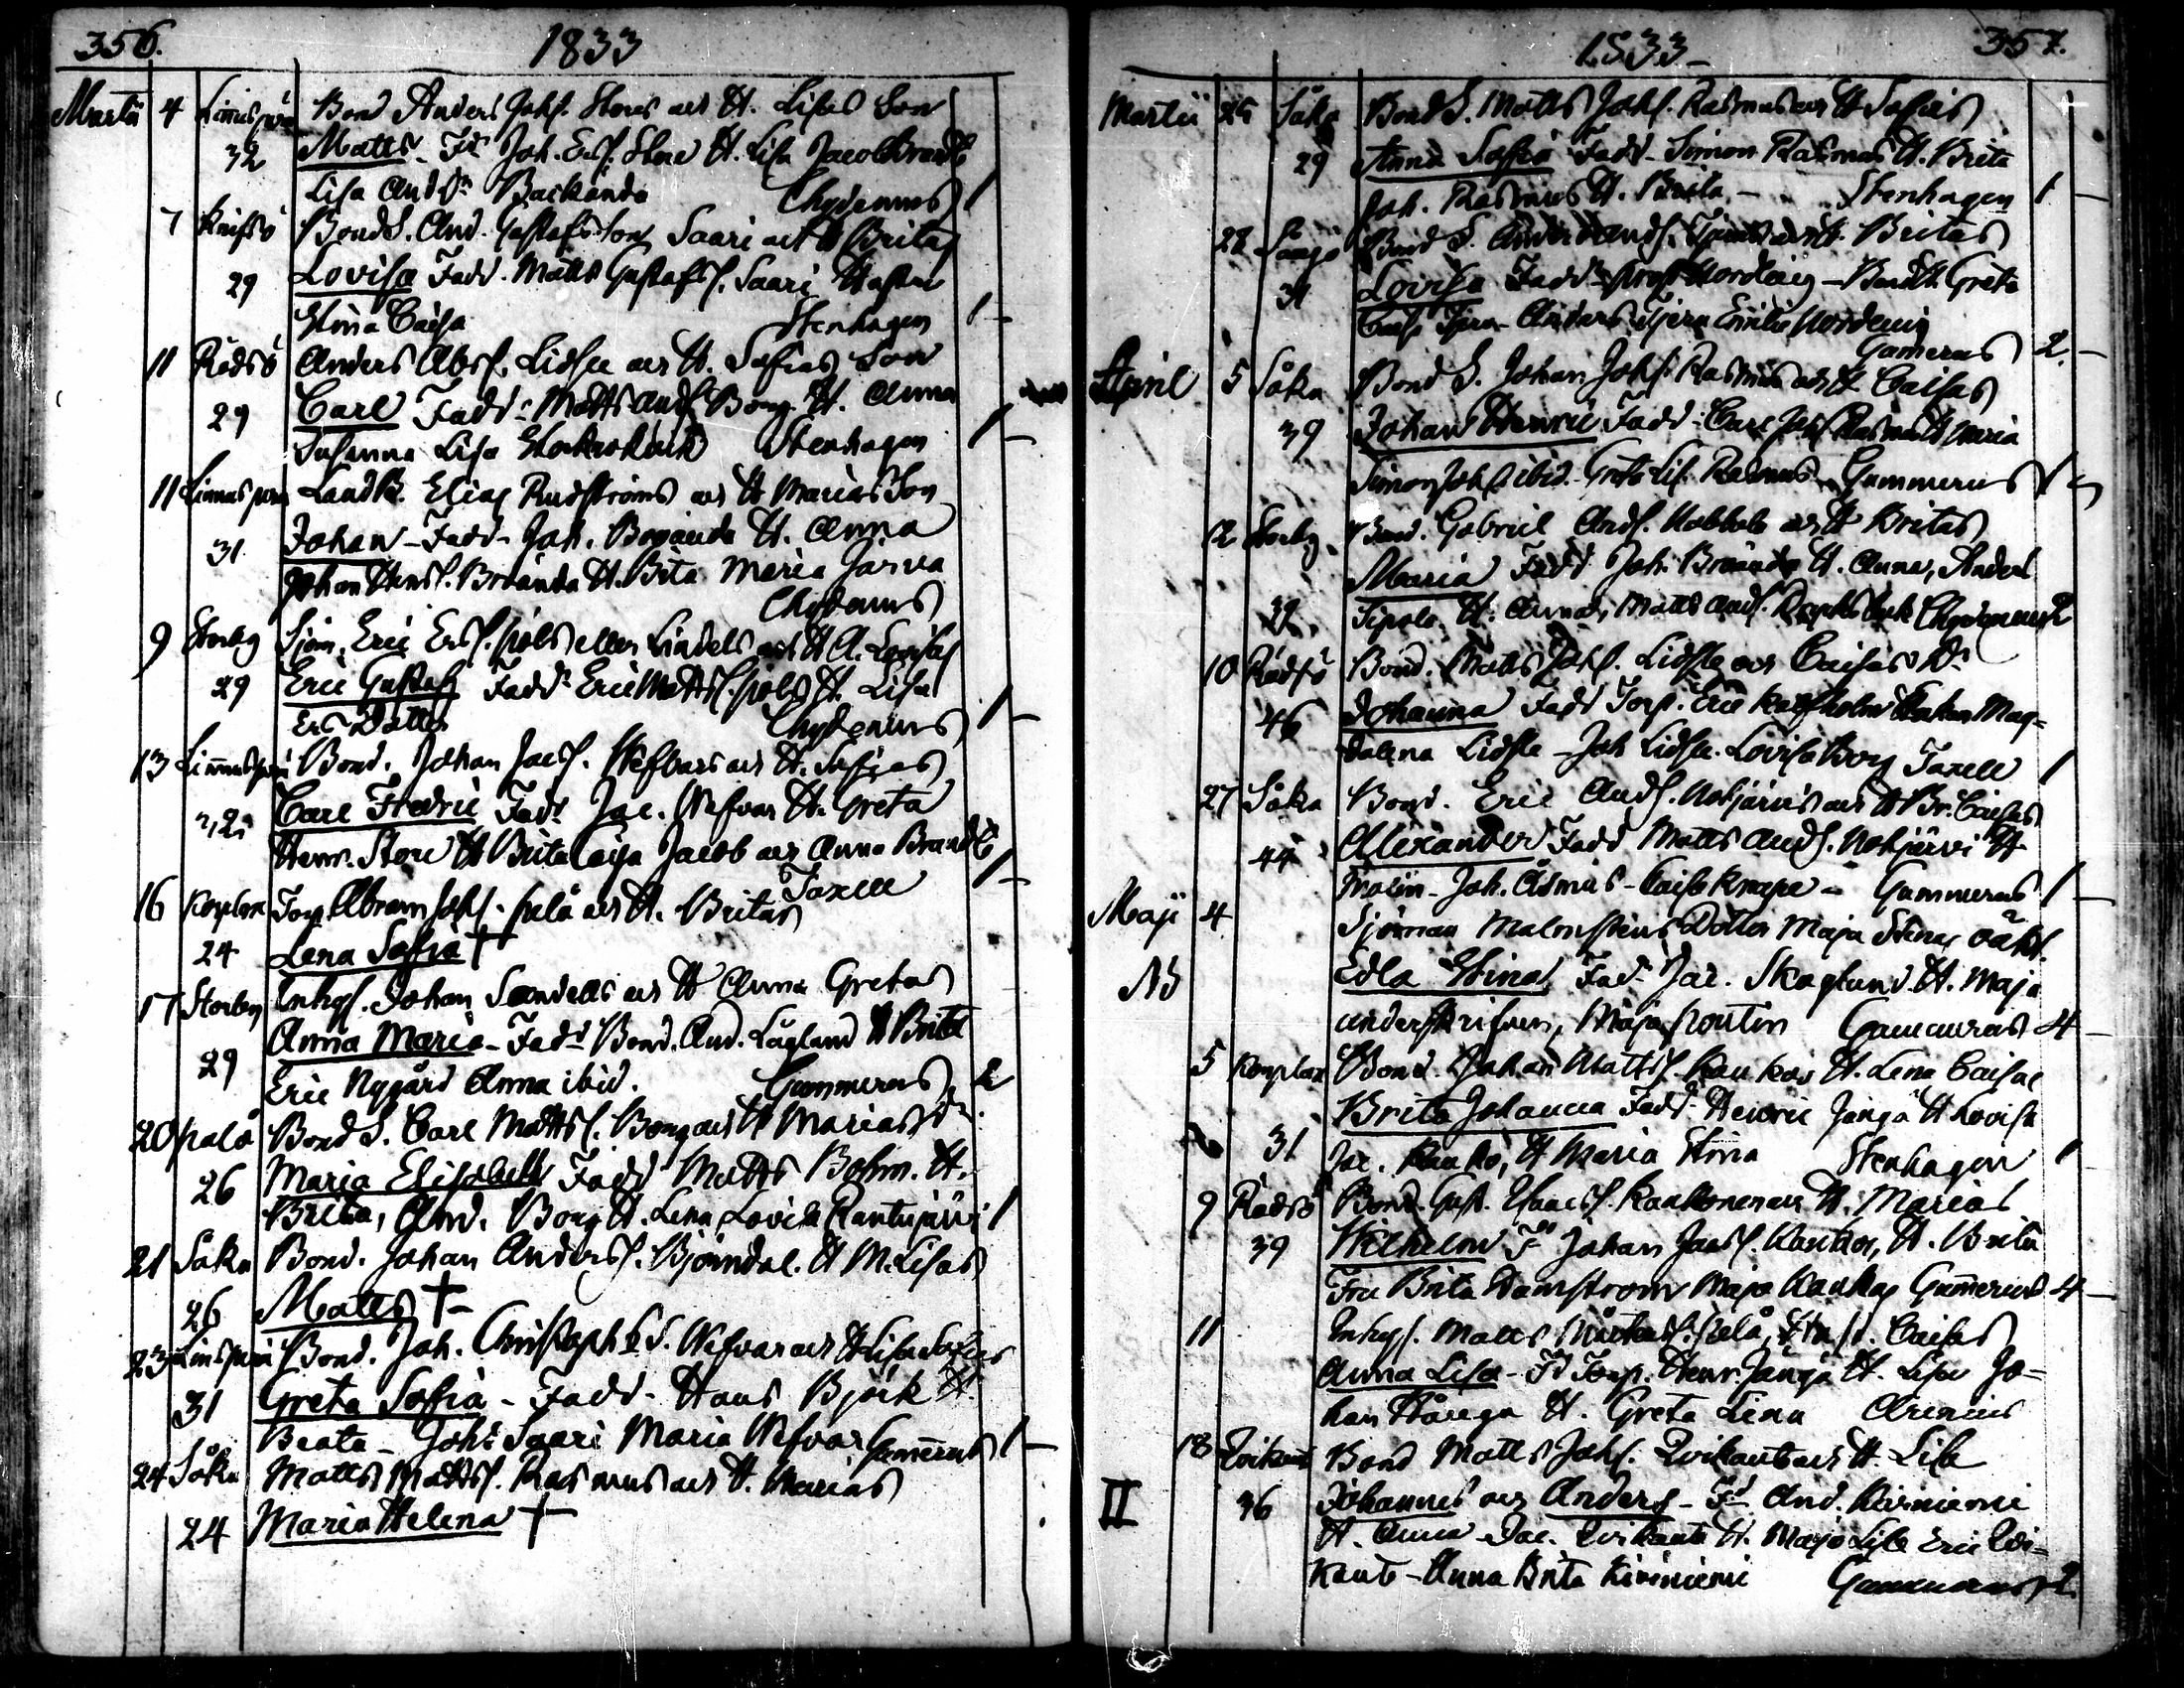 356.
1833
Martii 4 Limusperä Bond Anders Johs. Stores och H. Lisas Son
32 Matts. Fd Joh. Ers. Store H. Lisa Jacob Brandt
Lisa Andsdr Backända Chydenius 1
7 Knifsö BondS. And. Gustafsson Saari och H Britas
29 Lovisa Fadd. Matts Gustafss. Saari Hustru
Stina Caisa Stenhagen 1
11 Rödsö Anders Abrs. Lidsle och H. Sofias Son
29 Carl Fadd: Matts Ands Bong H. Anna
Susanna Lisa Stenhagen 1
11 Linnusperä LandB. Elias Rudströms och H Marias Son
31 Johan - Fadd. Joh. Boända H. Anna
Johan Hens. Broända H. Brita Maria Järva
Chydenius
9 Storby Sjöm. Eric Ers. eller Lindels och H A. Lovisas
29 Eric Gustaf Fadd: Eric Matts. H. Lisa
Ers Dotter Chydenius 1
13 Limusperä Bond. Johan Jacs. Wefvars och H. Sofias
32 Carl Fredric Fadd Jac. Wefvar H. Greta
Henr. Store H Brita Caisa Jacob och Anna Brandt 1
Taxell
16 Korplax Torp Abram Johs. Palå och H. Britas
24 Lena Sofia †
17 Storby Inhys. Johan Sandells och H Anna Gretas
29 Anna Maria - Fadd Bond. And. Lågland H Brita
Eric Nygård Anna ibid. Gummerus 2
20 Palå BondS. Carl Matts. Bong och H Marias Dr
26 Maria Elisabeth Fadd Matts Bohm. H.
Brita, And. Bong H. Lena, Lovisa Rantujärvi 1
21 Såka Bond. Johan Anderss. Björndal. H M. Lisas
26 Matts †
23 Linusperä Bond. Joh. Christophs S. Wefvar och H Lisa Sofias
31 Greta Sofia - Fadd - Hans Björk H.
Beata - Joh: Saari Maria Wefvar Gummerus 1
24 Såka Matts Matts. Rasmus och H. Marias
24 Maria Helena †
1833
357.
Martii 25 Såka BondS. Matts Johs. Rasmus och H Sofias
29 Anna Sofia Fadd - Simon Rasmus H. Brita
Joh. Rasmus H. Brita - Stenhagen 1
28 BondS. Anders Ands. och H. Britas
31 Lovisa Fadd Nordling - Greta
Anders Emilie Nordling
Gumerus 2
April 5 Såka BondS. Johan Johs. Rasmus och H. Caisas
39 Johan Henric Fadd - Carl Johs Rasmus H Maria
Simon Johs ibid. Greta Lis. Rasmus Gummerus 1
12 Storby Bond. Gabriel Ands. och H Britas
32 Maria Fadd Joh. Broända H. Anna, Anders
Sipola H. Anna, Matts Ands. Chydenius 2
10 Rödsö Bond. Matts Johs. Lidsle och Caisas Dr
46 Johanna Fadd Torp. Eric Kalfholm Enkan Mag-
dalena Lidsle - Joh Lidsle. Lovisa Bong Taxell 1
27 Såka Bond. Eric Ands. Nokjärvis och H Br. Caisas
44 Alexander Fadd Matts Ands. Nokjärvi H
Malin - Joh. Åsmus - Caisa Knape - Gummerus 1
Maji 4 Sjöman Malmstens Dotter Maja Stinas oäkt.
NB Edla Stina Fad: Jac. Skoglund. H. Maja
underskrifven, Maja Pontin Gummerus 4
5 Korplax Bond. Johan Matts. Kaukos H. Lena Caisas
31 Brita Johanna Fadd - Henric Jångå H Lovisa
Jac. Kauko, H Maria Stina Stenhagen 1
9 Rödsö Bond. Gust. Isacs. Kaukonen och H. Marias
39 Wilhelm Fd Johan Jacs. Kaukos, H. Brita
Fru Brita Damström Maja Kaukas Gummerus 4
11 Inhys. Matts Palå, H. Caisas
Anna Lisa - Fd Torp. Henr. Jångå H. Lisa Jo-
han Hånga H. Greta Lena Arenius
18 Qvikant Bond Matts Johs. Qvikants och H. Lisa
II 36 Johannes och Anders - Fd And. Kiviniemi
H. Anna Jac. Qvikant H. Maja Lisa Eric Qvi-
kant - Anna Brita Kiviniemi Gummerus 2